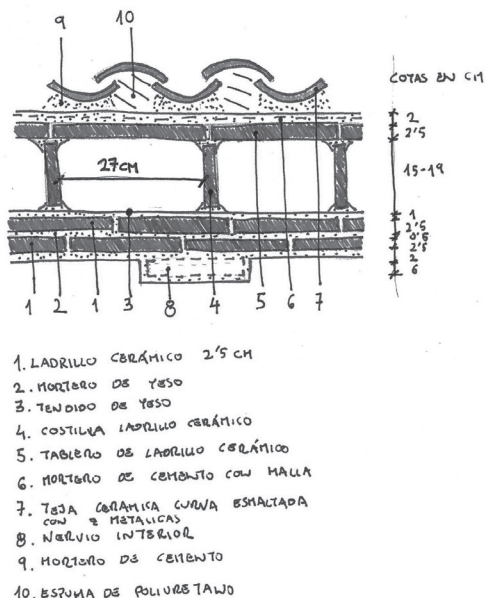 9 10
COTAS EN CM
2
2'5
27CM
15-19
1
2'5
0'5
2'5
2
6
1 2 1 3 8 4 5 6 7
1. LADRILLO CERÁMICO 2'5 CM
2. MORTERO DE YESO
3. TENDIDO DE YESO
4. COSTILLA LADRILLO CERÁMICO
5. TABLERO DE LADRILLO CERÁMICO
6. MORTERO DE CEMENTO CON MALLA
7. TEJA CERAMICA CURVA ESMALTADA
CON Z METALICAS
8. NERVIO INTERIOR
9. MORTERO DE CEMENTO
10. ESPUMA DE POLIURETANO